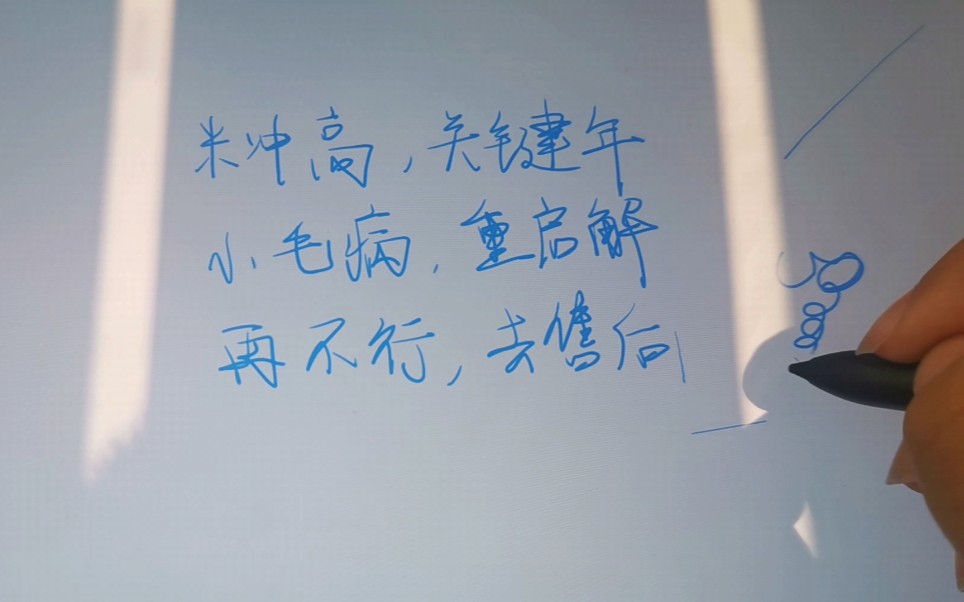 米冲高,关键年
小毛病,重启解
再不行,去售后